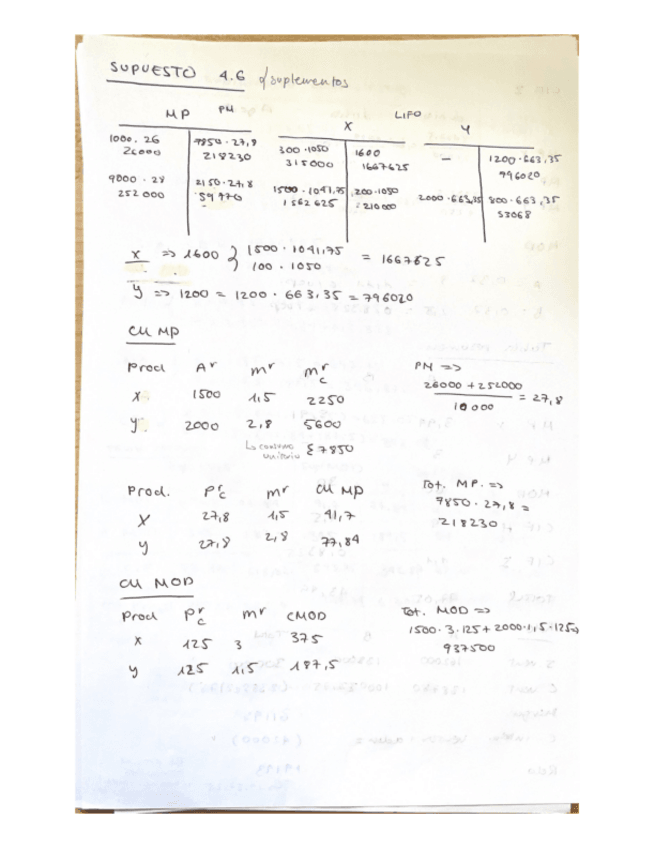 SUPUESTO 4.6 d/suplementos
MP PM X LIFO Y
1000 . 26 7850 . 27,8 300 . 1050 1600 — 1200 . 663,35
26000 218230 315000 1667625 796020
9000 . 28 2150 . 27,8 1500 . 1041,75 200 . 1050 2000 . 663,35 800 . 663,35
252000 59770 1562625 210000 53068
X => 1600 } 1500 . 1041,75 = 1667625
100 . 1050
Y => 1200 = 1200 . 663,35 = 796020
CU MP
Prod Ar mr mrc PM =>
X 1500 1,5 2250 26000 + 252000 = 27,8
Y 2000 2,8 5600 10000
↳ consumo unitario Σ 7850
Prod. Prc mr CU MP Tot. MP. =>
X 27,8 1,5 41,7 7850 . 27,8 =
Y 27,8 2,8 77,84 218230
CU MOD
Prod Prc mr CMOD Tot. MOD =>
X 125 3 375 1500 . 3 . 125 + 2000 . 1,5 . 125
Y 125 1,5 187,5 937500